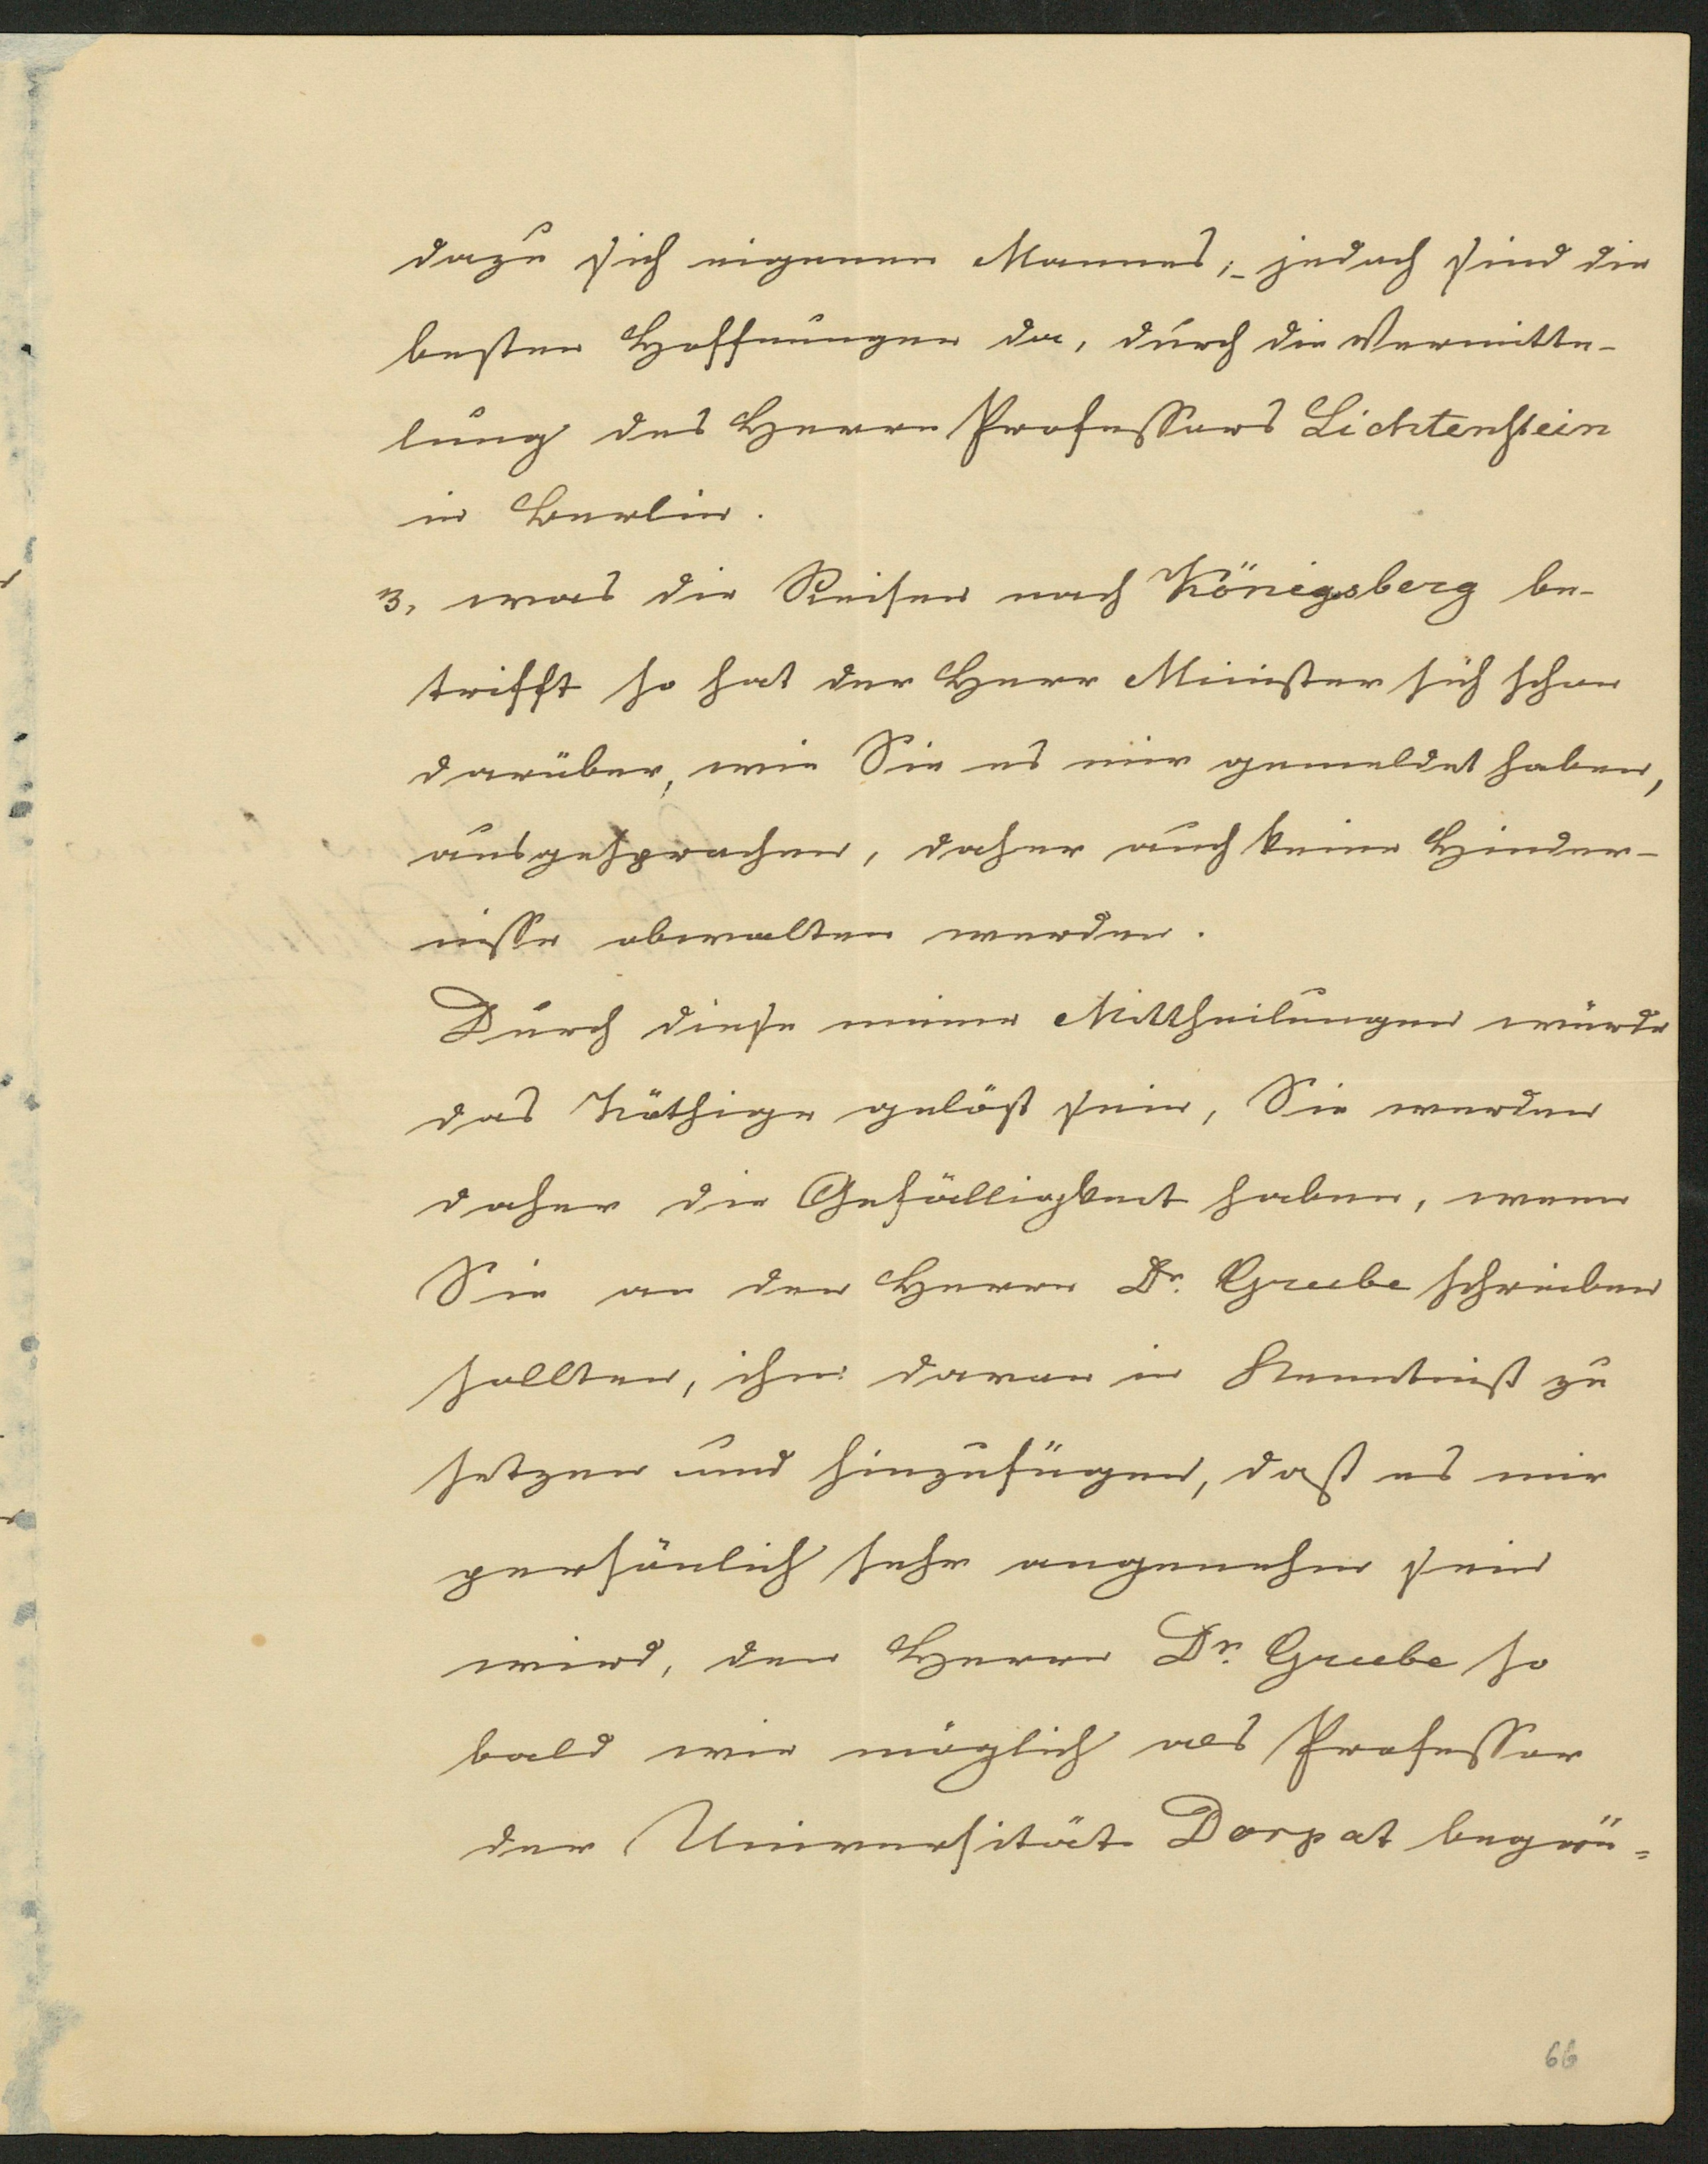 dazu sich eigenen Mannes;- jedoch sind die
besten Hoffnungen da, durch die Vermitte-
lung des Herrn Professors Lichtenstein
in Berlin.
3, was die Reisen nach Königsberg be-
trifft so hat der Herr Minister sich schon
darüber, wie Sie es mir gemeldet haben,
ausgesprochen, daher auch keine Hinder-
nisse obwalten werden.
Durch diese meine Mittheilungen würde
das Nöthige gelöst sein, Sie werden
daher die Gefälligkeit haben, wenn
Sie an den Herrn Dr. Grube schreiben
sollten, ihn davon in Kenntniß zu
setzen und hinzufügen, daß es mir
persönlich sehr angenehm sein
wird, den Herrn Dr. Grube so
bald wie möglich als Professor
der Universität Dorpat begrü-
66